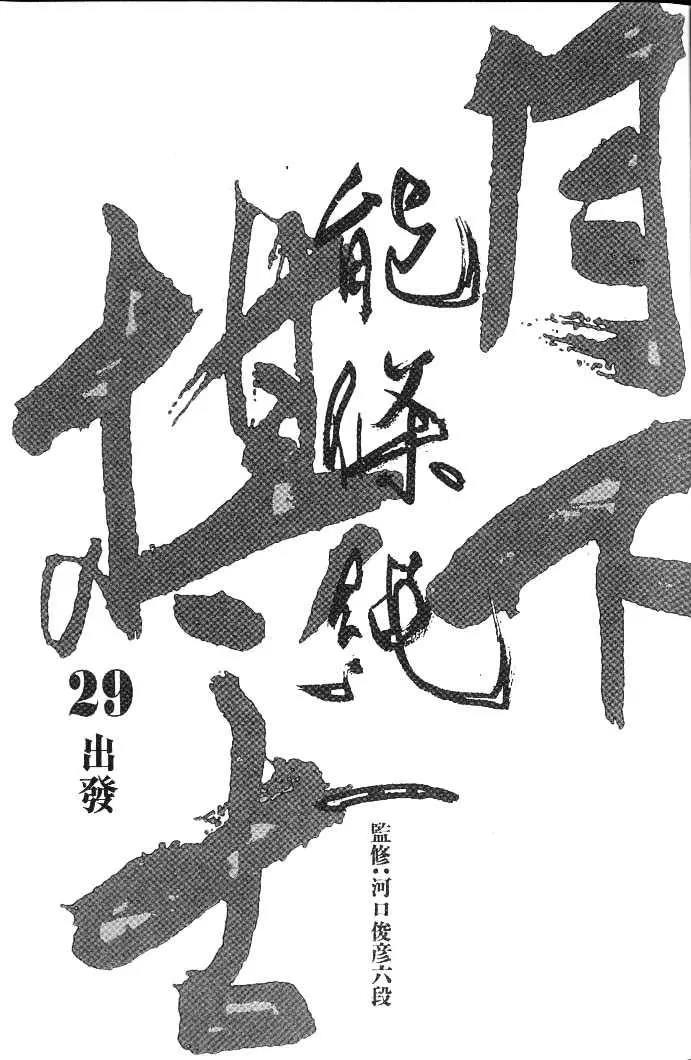 月下
棋士
能條純一
監修：河口俊彦六段
29
出發